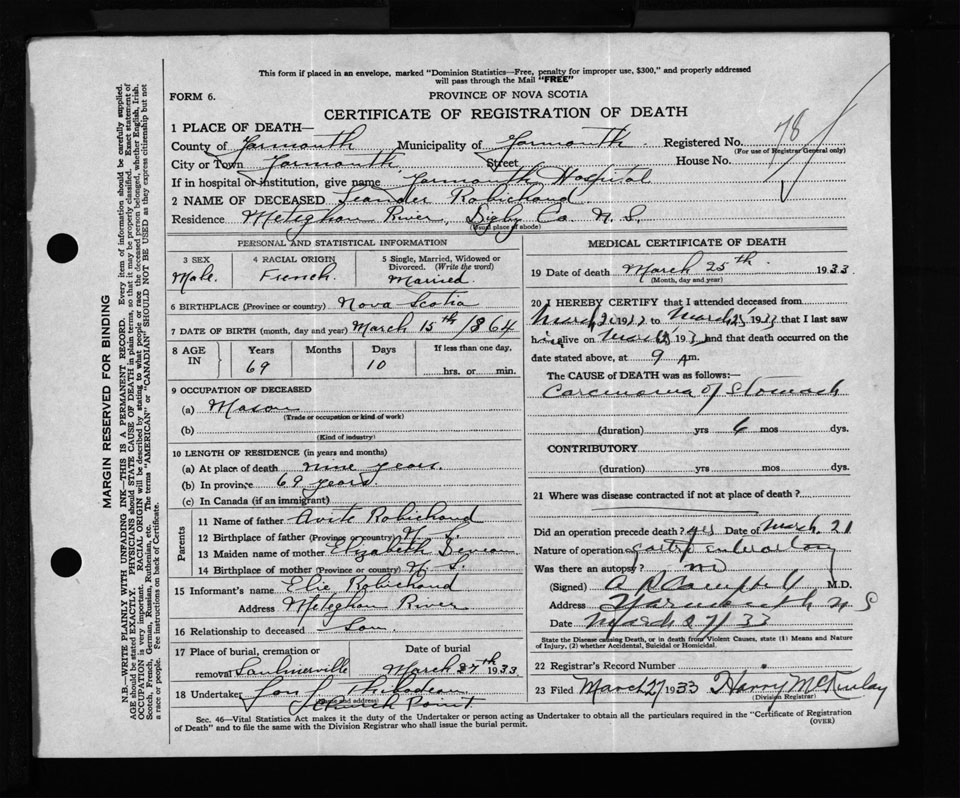 This form if placed in an envelope, marked "Dominion Statistics—Free, penalty for improper use, $300," and properly addressed
will pass through the Mail "FREE"
FORM 6.
PROVINCE OF NOVA SCOTIA
CERTIFICATE OF REGISTRATION OF DEATH
1 PLACE OF DEATH—
County of Yarmouth Municipality of Yarmouth Registered No. 78
(For use of Registrar General only)
City or Town Yarmouth Street House No.
If in hospital or institution, give name Yarmouth Hospital
2 NAME OF DECEASED Leander Robichaud
Residence Meteghan River, Digby Co. N. S.
(Usual place of abode)
PERSONAL AND STATISTICAL INFORMATION
3 SEX
Male.
4 RACIAL ORIGIN
French.
5 Single, Married, Widowed or
Divorced. (Write the word)
Married
6 BIRTHPLACE (Province or country) Nova Scotia
7 DATE OF BIRTH (month, day and year) March 15th 1864
8 AGE IN
Years
69
Months
Days
10
If less than one day,
hrs. or min.
9 OCCUPATION OF DECEASED
(a) Mason
(Trade or occupation or kind of work)
(b)
(Kind of industry)
10 LENGTH OF RESIDENCE (in years and months)
(a) At place of death nine years.
(b) In province 69 years
(c) In Canada (if an immigrant)
Parents
11 Name of father Avite Robichaud
12 Birthplace of father (Province or country) N. S.
13 Maiden name of mother Elizabeth
14 Birthplace of mother (Province or country) N. S.
15 Informant's name Elie Robichaud
Address Meteghan River
16 Relationship to deceased Son.
17 Place of burial, cremation or
removal Saulnierville
Date of burial
March 27th 1933
18 Undertaker Thibodeau
(Name and address) Church Point
MEDICAL CERTIFICATE OF DEATH
19 Date of death March 25th 1933
(Month, day and year)
20 I HEREBY CERTIFY that I attended deceased from
March 1933 to March 25 1933 that I last saw
him alive on March 1933 and that death occurred on the
date stated above, at 9 A m.
The CAUSE of DEATH was as follows:—
Carcinoma of Stomach
(duration) yrs 6 mos dys.
CONTRIBUTORY
(duration) yrs mos dys.
21 Where was disease contracted if not at place of death?
Did an operation precede death? yes Date of March 21
Nature of operation
Was there an autopsy? no
(Signed) A R Campbell M.D.
Address Yarmouth N S
Date March 27/33
State the Disease causing Death, or in death from Violent Causes, state (1) Means and Nature
of Injury, (2) whether Accidental, Suicidal or Homicidal.
22 Registrar's Record Number
23 Filed March 27 1933 Harry McKinlay
(Division Registrar)
Sec. 46—Vital Statistics Act makes it the duty of the Undertaker or person acting as Undertaker to obtain all the particulars required in the "Certificate of Registration
of Death" and to file the same with the Division Registrar who shall issue the burial permit.
(OVER)
MARGIN RESERVED FOR BINDING
N.B.—WRITE PLAINLY WITH UNFADING INK—THIS IS A PERMANENT RECORD. Every item of information should be carefully supplied.
AGE should be stated EXACTLY. PHYSICIANS should STATE CAUSE OF DEATH in plain terms, so that it may be properly classified. Exact statement of
OCCUPATION is very important. RACIAL ORIGIN will be described by stating to what people or race the deceased person belonged, whether English, Irish,
Scotch, French, German, Russian, Ruthenian, etc. The terms "AMERICAN" or "CANADIAN" SHOULD NOT BE USED as they express citizenship but not
a race or people. Fee instructions on back of Certificate.